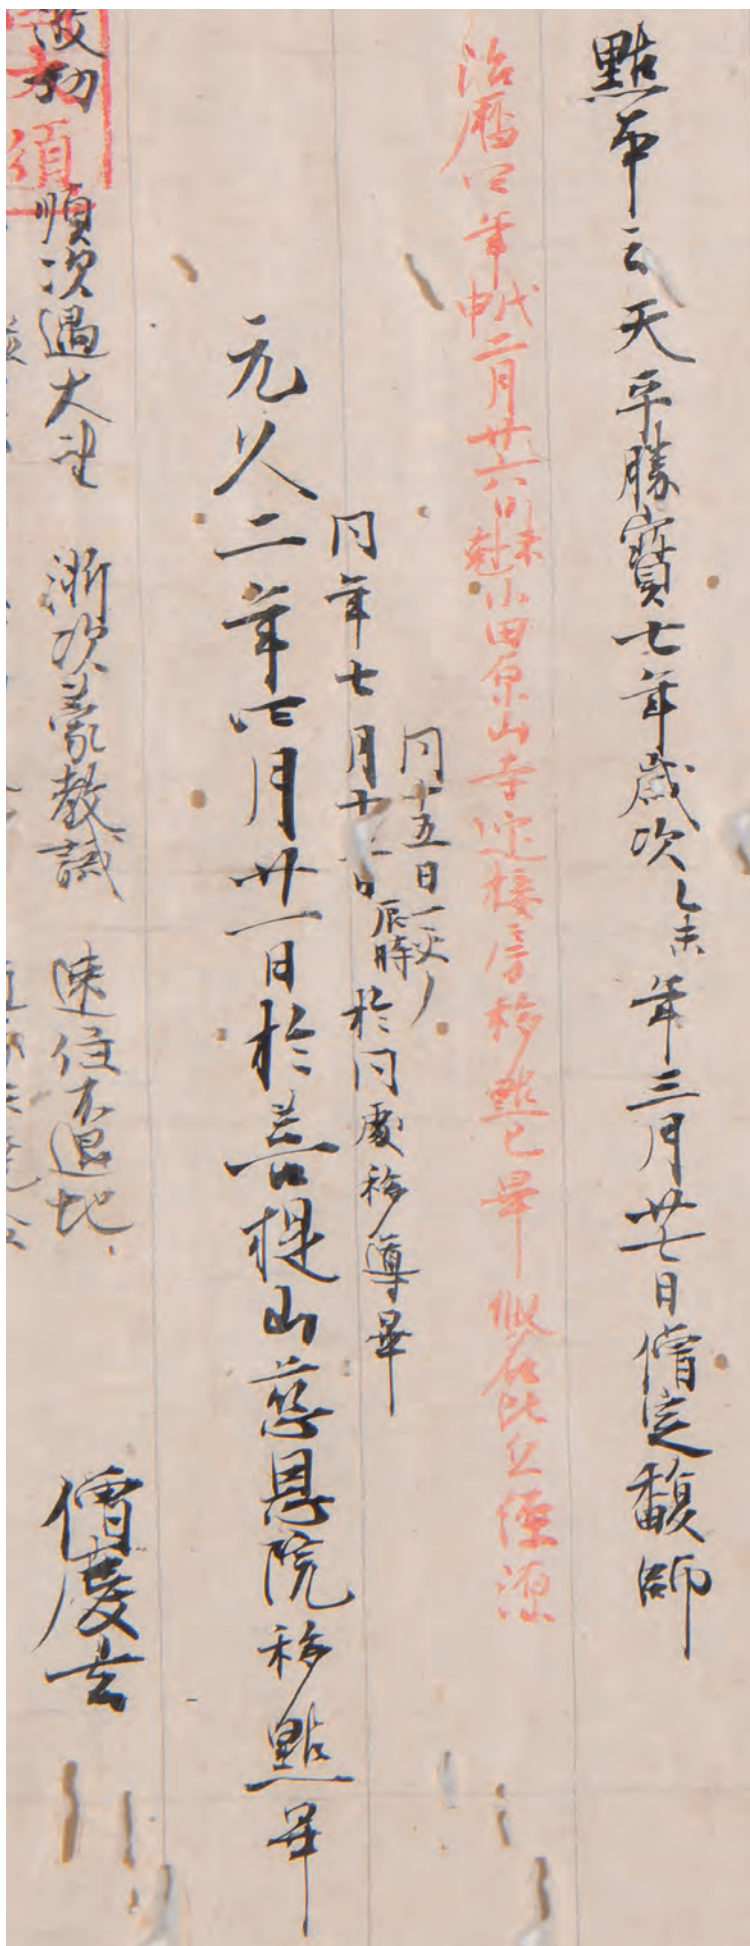 點本云天平勝寳七年歳次乙未年三月廿七日僧定馥師
治暦四年戊申二月廿六日未尅小田原山寺迎接房移點已畢 假名比丘經源
同十五日一交了
同年七月十一日辰時於同處移導畢
元久二年四月廿一日於菩提山慈恩院移點畢
順次遇大聖 漸次蒙教誡 速住不退地 僧慶玄